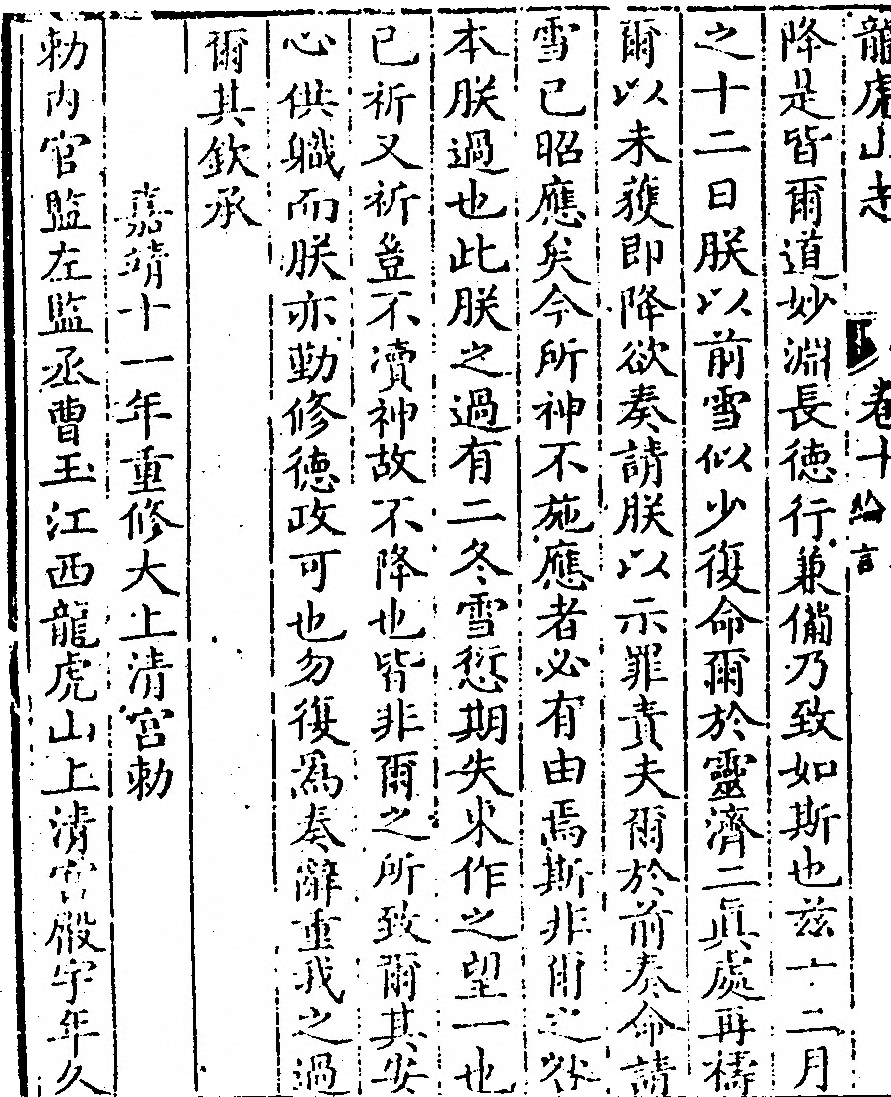 龍虎山志 卷十 綸言
降是皆爾道妙淵長德行兼備乃致如斯也茲十二月
之十二日朕以前雪似少復命爾於靈濟二眞處再禱
爾以未獲即降欲奏請朕以示罪責夫爾於前奏命請
雪已昭應矣今所神不施應者必有由焉斯非爾之咎
本朕過也此朕之過有二冬雪愆期失來作之望一也
已祈又祈豈不凟神故不降也皆非爾之所致爾其安
心供職而朕亦勤修德政可也勿復爲奏辭重我之過
爾其欽承
嘉靖十一年重修大上清宮勅
勅内官監左監丞曹玉江西龍虎山上清宮殿宇年久